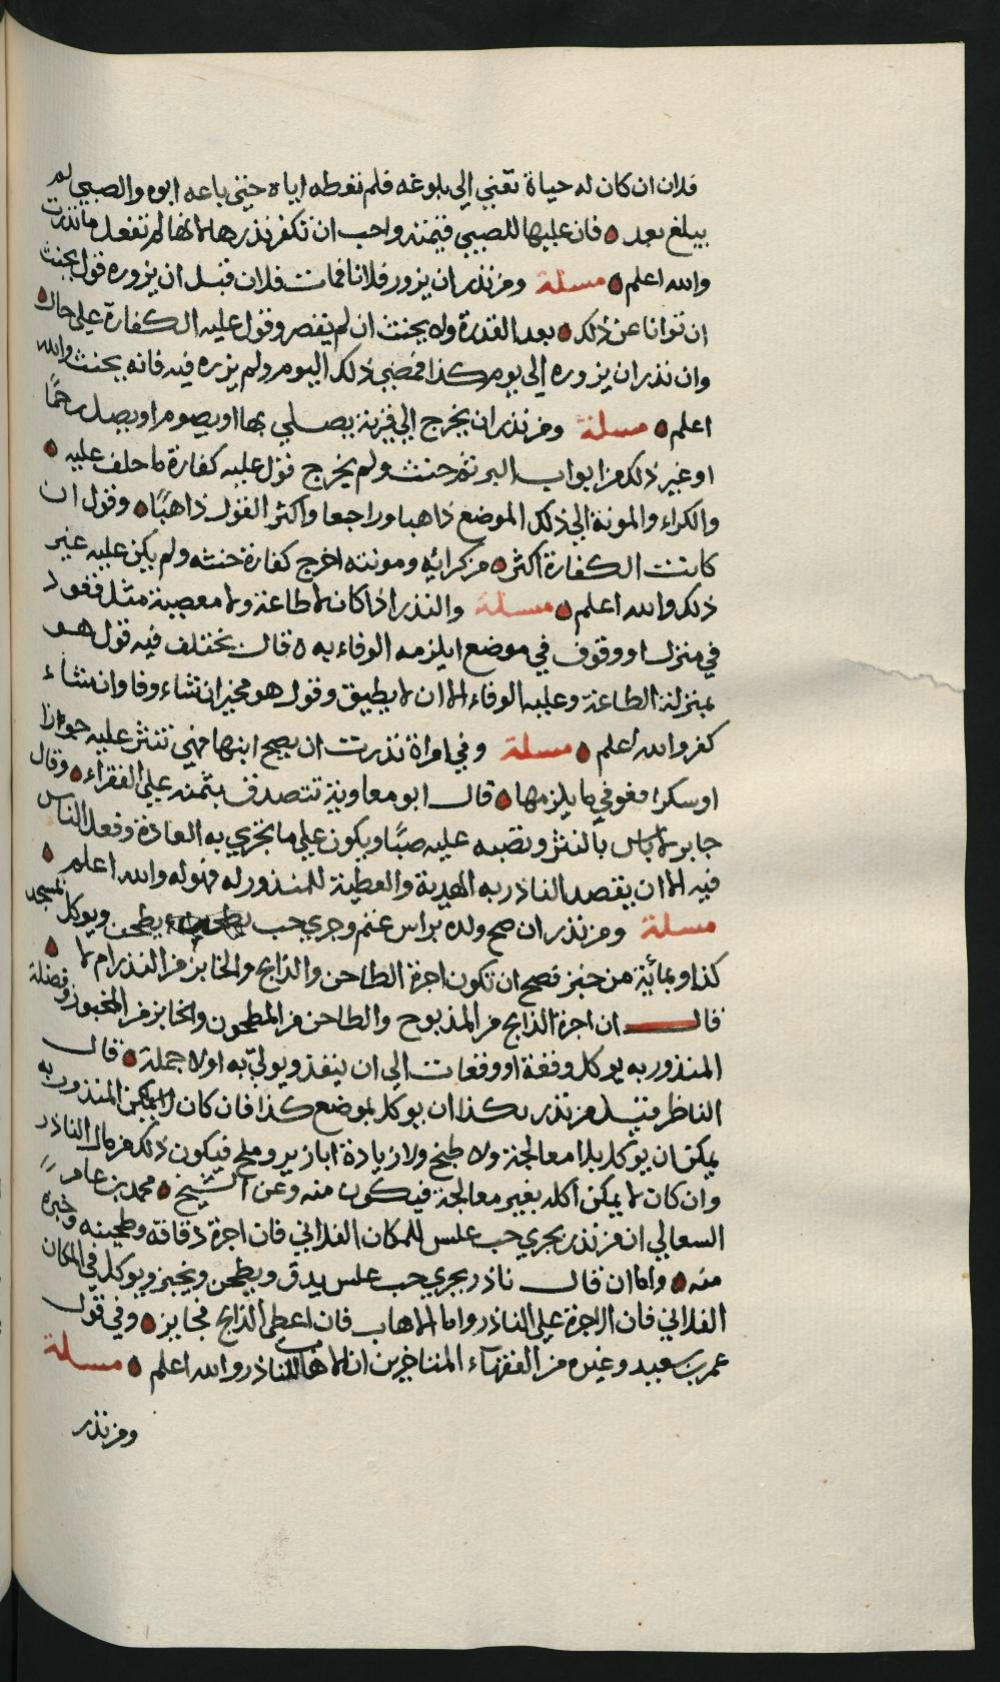 فلان ان كان له حياة تعني الى بلوغه فلم تعطه اياه حتى باعه ابوه والصبي لم
يبلغ بعد فان عليها للصبي قيمته واحب ان تكفر نذرها لانها لم تفعل ما نذرت
والله اعلم مسئلة ومن نذر ان يزور فلانا فمات فلان قبل ان يزوره قول يحنث
ان توانا عن ذلك بعد القدرة ولا يحنث ان لم يقصر وقول عليه الكفارة على حال
وان نذر ان يزوره الى يوم كذا فمضى ذلك اليوم ولم يزره فيه فانه يحنث والله
اعلم مسئلة ومن نذر ان يخرج الى قرية يصلي بها او يصوم او يصل رحمًا
او غير ذلك من ابواب البر ثم حنث ولم يخرج فقول عليه كفارة ما حلف عليه
والكراء والمونة الى ذلك الموضع ذاهبا وراجعا واكثر القول ذاهبًا وقول ان
كانت الكفارة اكثر من كرائه ومونته اخرج كفارة حنثه ولم يكن عليه غير
ذلك والله اعلم مسئلة والنذر اذا كان لا طاعة ولا معصية مثل قعود
في منزل او وقوف في موضع ايلزمه الوفاء به قال يختلف فيه قول هو
بمنزلة الطاعة وعليه الوفاء الا ان لا يطيق وقول هو مخير ان شاء وفا وان شاء
كفر والله اعلم مسئلة وفي امراة نذرت ان يصح ابنها فهي تنثر عليه جوازا
او سكرا فعوفي ما يلزمها قال ابو معاوية تتصدق بثمنه على الفقراء وقال
جابر لا باس بالنثر وتصبه عليه صبًا ويكون على ما تجري به العادة وفعل الناس
فيه الا ان يقصد الناذر به الهدية والعطية للمنذور له فهو له والله اعلم
مسئلة ومن نذر ان صح ولده براس غنم وجري حب يطحن ويوكل بمسجد
كذا وبمائة من خبز فصح ان تكون اجرة الطاحن والذابح والخابز من النذر ام لا
قال ان اجرة الذابح من المذبوح والطاحن من المطحون والخابز من المخبوز وفضلة
المنذور به يوكل وقفة او وقعات الى ان ينفذ ويولى به اولا جملة قال
الناظر فيمن نذر بكذا ان يوكل بموضع كذا فان كان المنذور به
يمكن ان يوكل بلا معالجة ولا طبخ ولا زيادة ابازير وملح فيكون ذلك من مال الناذر
وان كان لا يمكن اكله بغير معالجة فيكون منه وعن الشيخ محمد بن عامر
السعالي ان من نذر بجري حب علس للمكان الفلاني فان اجرة دقاقه وطحينه وخبزه
منه واما ان قال ناذر بجري حب علس يدق ويطحن ويخبز ويوكل في المكان
الفلاني فان الاجرة على الناذر واما الاهاب فان اعطى الذابح فجايز وفي قول
عمر بن سعيد وغيره من الفقهاء المتاخرين ان الاهاب للناذر والله اعلم مسئلة
ومن نذر